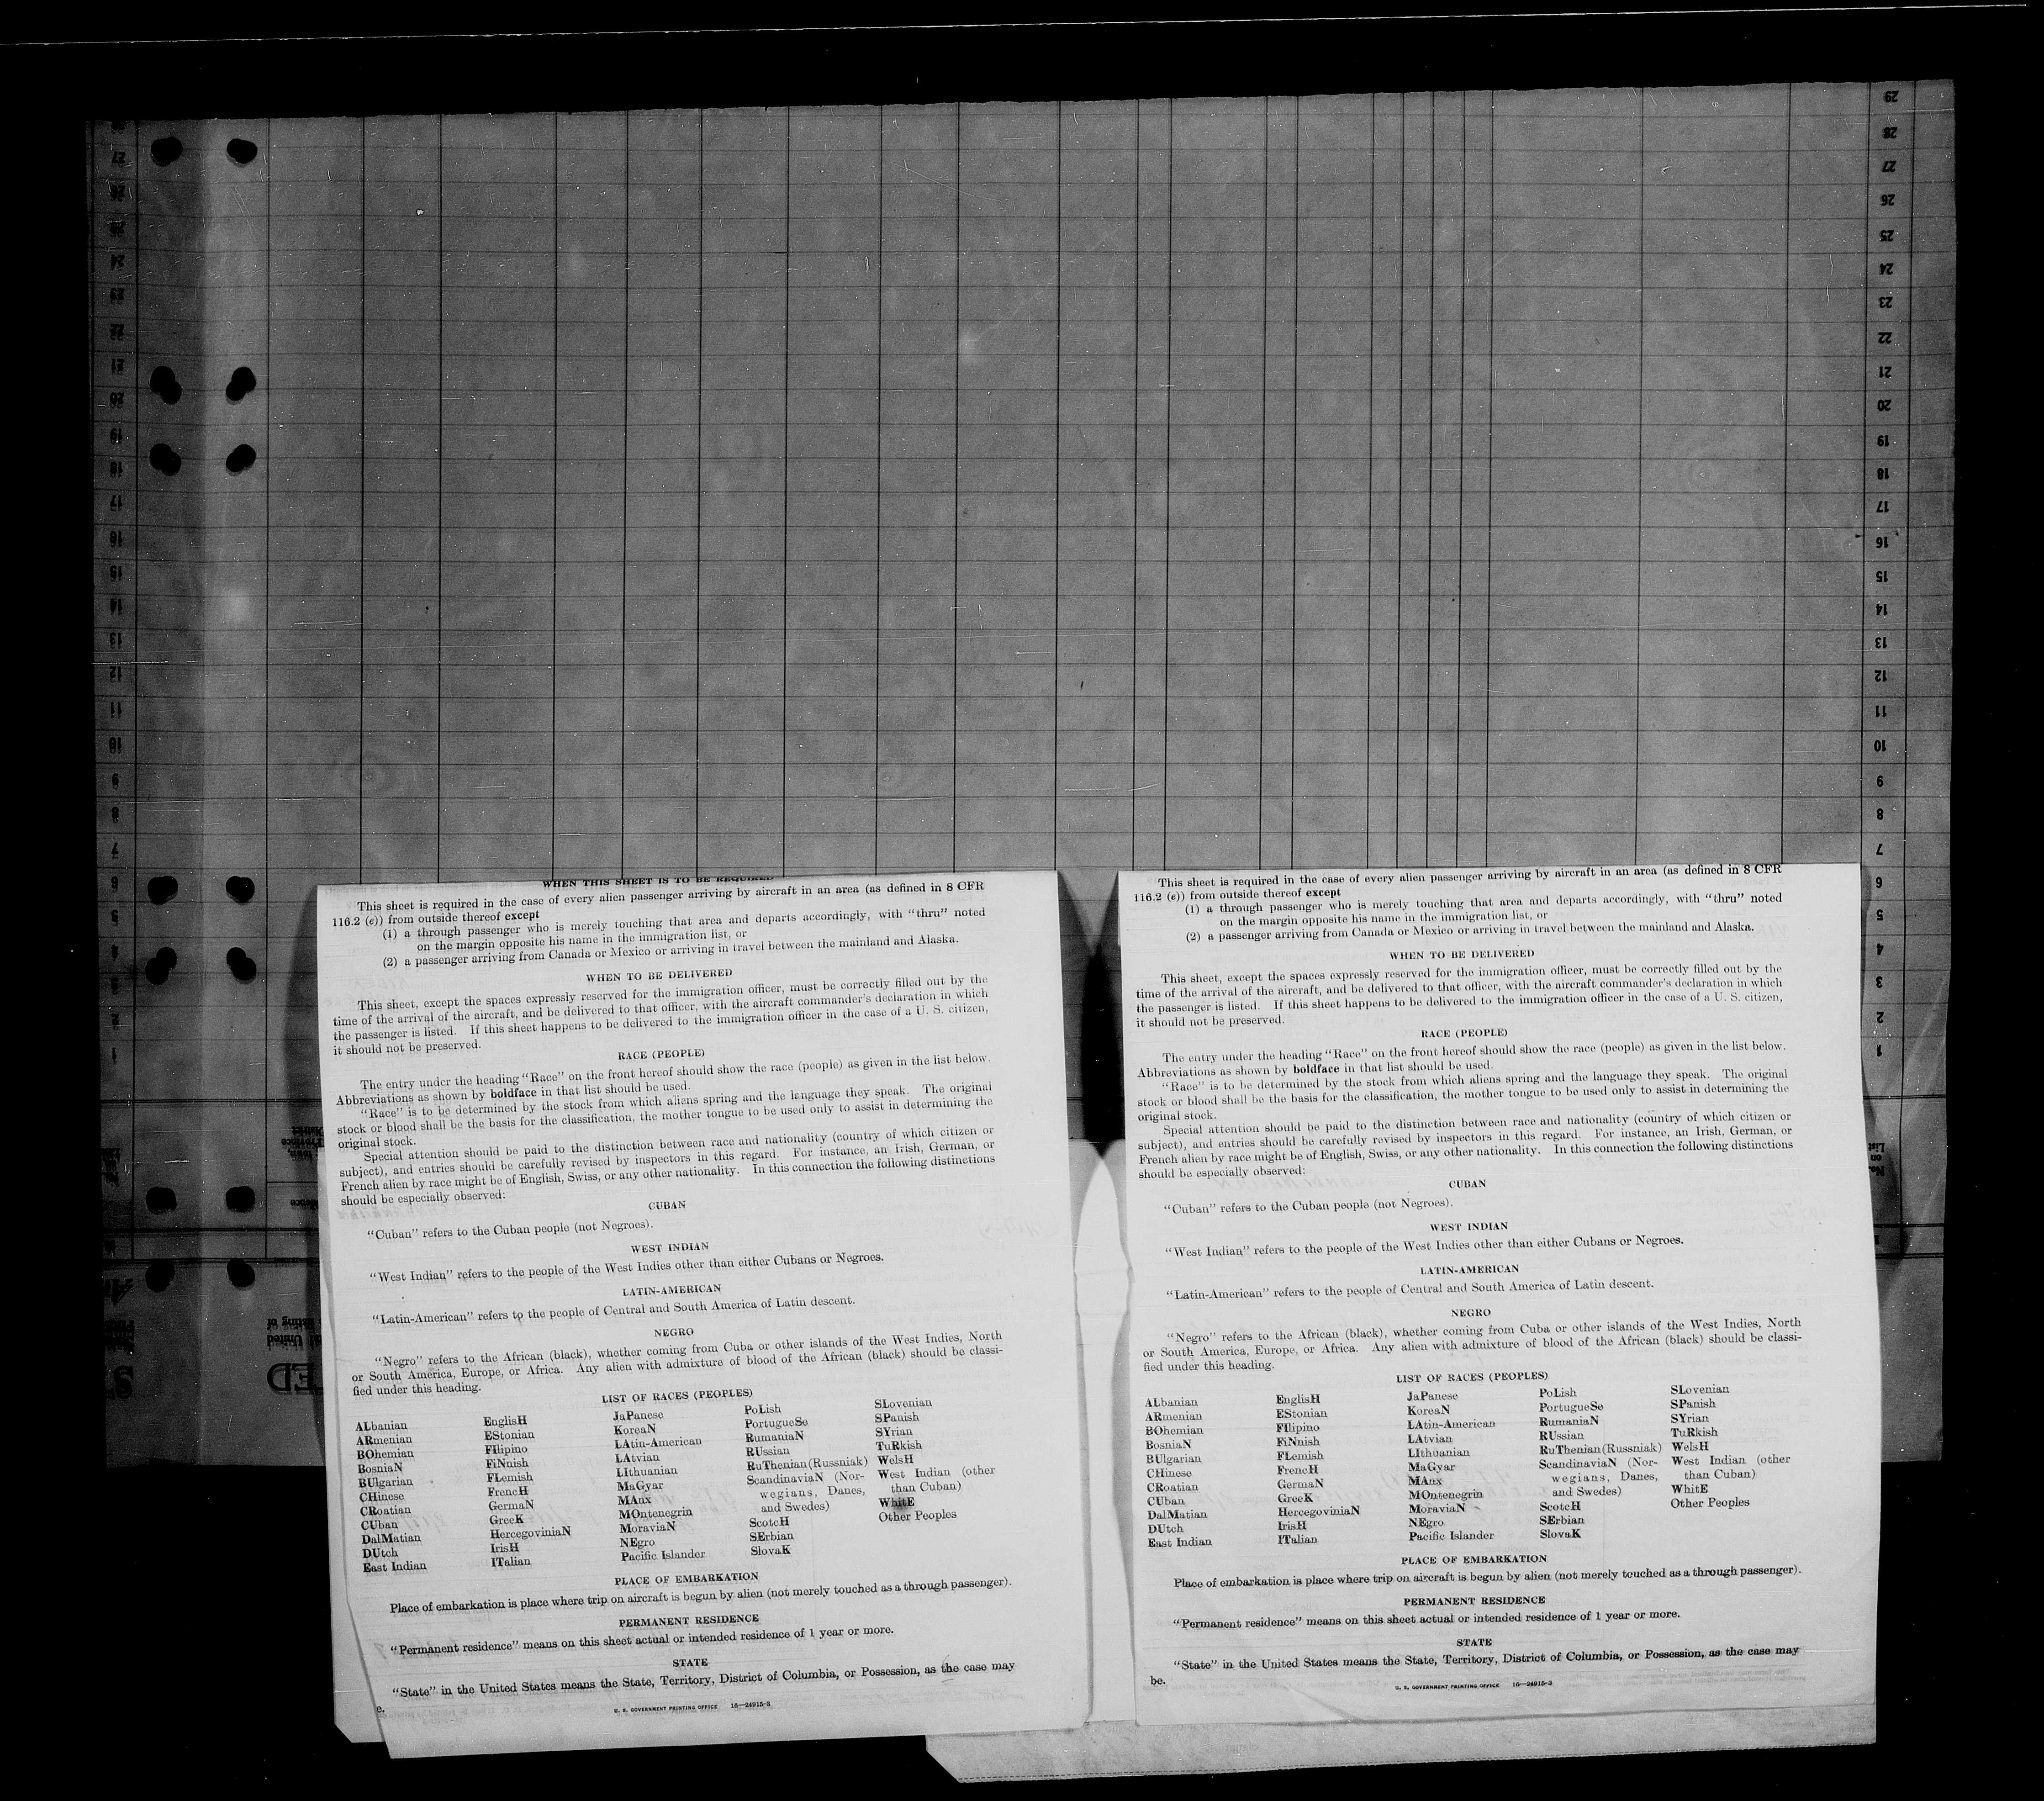 WHEN THIS SHEET IS TO BE REQUIRED
This sheet is required in the case of every alien passenger arriving by aircraft in an area (as defined in 8 CFR
116.2 (c)) from outside thereof except
(1) a through passenger who is merely touching that area and departs accordingly, with "thru" noted
on the margin opposite his name in the immigration list, or
(2) a passenger arriving from Canada or Mexico or arriving in travel between the mainland and Alaska.
WHEN TO BE DELIVERED
This sheet, except the spaces expressly reserved for the immigration officer, must be correctly filled out by the
time of the arrival of the aircraft, and be delivered to that officer, with the aircraft commander's declaration in which
the passenger is listed. If this sheet happens to be delivered to the immigration officer in the case of a U. S. citizen,
it should not be preserved.
RACE (PEOPLE)
The entry under the heading "Race" on the front hereof should show the race (people) as given in the list below.
Abbreviations as shown by boldface in that list should be used.
"Race" is to be determined by the stock from which aliens spring and the language they speak. The original
stock or blood shall be the basis for the classification, the mother tongue to be used only to assist in determining the
original stock.
Special attention should be paid to the distinction between race and nationality (country of which citizen or
subject), and entries should be carefully revised by inspectors in this regard. For instance, an Irish, German, or
French alien by race might be of English, Swiss, or any other nationality. In this connection the following distinctions
should be especially observed:
CUBAN
"Cuban" refers to the Cuban people (not Negroes).
WEST INDIAN
"West Indian" refers to the people of the West Indies other than either Cubans or Negroes.
LATIN-AMERICAN
"Latin-American" refers to the people of Central and South America of Latin descent.
NEGRO
"Negro" refers to the African (black), whether coming from Cuba or other islands of the West Indies, North
or South America, Europe, or Africa. Any alien with admixture of blood of the African (black) should be classi-
fied under this heading.
LIST OF RACES (PEOPLES)
ALbanian
ARmenian
BOhemian
BosniaN
BUlgarian
CHinese
CRoatian
CUban
DalMatian
DUtch
East Indian
EnglisH
EStonian
FIlipino
FiNnish
FLemish
FrencH
GermaN
GreeK
HercegoviniaN
IrisH
ITalian
JaPanese
KoreaN
LAtin-American
LAtvian
LIthuanian
MaGyar
MAnx
MOntenegrin
MoraviaN
NEgro
Pacific Islander
PoLish
PortugueSe
RumaniaN
RUssian
RuThenian (Russniak)
ScandinaviaN (Nor-
wegians, Danes,
and Swedes)
ScotcH
SErbian
SlovaK
SLovenian
SPanish
SYrian
TuRkish
WelsH
West Indian (other
than Cuban)
WhitE
Other Peoples
PLACE OF EMBARKATION
Place of embarkation is place where trip on aircraft is begun by alien (not merely touched as a through passenger).
PERMANENT RESIDENCE
"Permanent residence" means on this sheet actual or intended residence of 1 year or more.
STATE
"State" in the United States means the State, Territory, District of Columbia, or Possession, as the case may
e.
U. S. GOVERNMENT PRINTING OFFICE 16—24915-3
This sheet is required in the case of every alien passenger arriving by aircraft in an area (as defined in 8 CFR
116.2 (c)) from outside thereof except
(1) a through passenger who is merely touching that area and departs accordingly, with "thru" noted
on the margin opposite his name in the immigration list, or
(2) a passenger arriving from Canada or Mexico or arriving in travel between the mainland and Alaska.
WHEN TO BE DELIVERED
This sheet, except the spaces expressly reserved for the immigration officer, must be correctly filled out by the
time of the arrival of the aircraft, and be delivered to that officer, with the aircraft commander's declaration in which
the passenger is listed. If this sheet happens to be delivered to the immigration officer in the case of a U. S. citizen,
it should not be preserved.
RACE (PEOPLE)
The entry under the heading "Race" on the front hereof should show the race (people) as given in the list below.
Abbreviations as shown by boldface in that list should be used.
"Race" is to be determined by the stock from which aliens spring and the language they speak. The original
stock or blood shall be the basis for the classification, the mother tongue to be used only to assist in determining the
original stock.
Special attention should be paid to the distinction between race and nationality (country of which citizen or
subject), and entries should be carefully revised by inspectors in this regard. For instance, an Irish, German, or
French alien by race might be of English, Swiss, or any other nationality. In this connection the following distinctions
should be especially observed:
CUBAN
"Cuban" refers to the Cuban people (not Negroes).
WEST INDIAN
"West Indian" refers to the people of the West Indies other than either Cubans or Negroes.
LATIN-AMERICAN
"Latin-American" refers to the people of Central and South America of Latin descent.
NEGRO
"Negro" refers to the African (black), whether coming from Cuba or other islands of the West Indies, North
or South America, Europe, or Africa. Any alien with admixture of blood of the African (black) should be classi-
fied under this heading.
LIST OF RACES (PEOPLES)
ALbanian
ARmenian
BOhemian
BosniaN
BUlgarian
CHinese
CRoatian
CUban
DalMatian
DUtch
East Indian
EnglisH
EStonian
FIlipino
FiNnish
FLemish
FrencH
GermaN
GreeK
HercegoviniaN
IrisH
ITalian
JaPanese
KoreaN
LAtin-American
LAtvian
LIthuanian
MaGyar
MAnx
MOntenegrin
MoraviaN
NEgro
Pacific Islander
PoLish
PortugueSe
RumaniaN
RUssian
RuThenian (Russniak)
ScandinaviaN (Nor-
wegians, Danes,
and Swedes)
ScotcH
SErbian
SlovaK
SLovenian
SPanish
SYrian
TuRkish
WelsH
West Indian (other
than Cuban)
WhitE
Other Peoples
PLACE OF EMBARKATION
Place of embarkation is place where trip on aircraft is begun by alien (not merely touched as a through passenger).
PERMANENT RESIDENCE
"Permanent residence" means on this sheet actual or intended residence of 1 year or more.
STATE
"State" in the United States means the State, Territory, District of Columbia, or Possession, as the case may
be.
U. S. GOVERNMENT PRINTING OFFICE 16—24915-3
29
28
27
26
25
24
23
22
21
20
19
18
17
16
15
14
13
12
11
10
9
8
7
6
5
4
3
2
1
No.
on
List